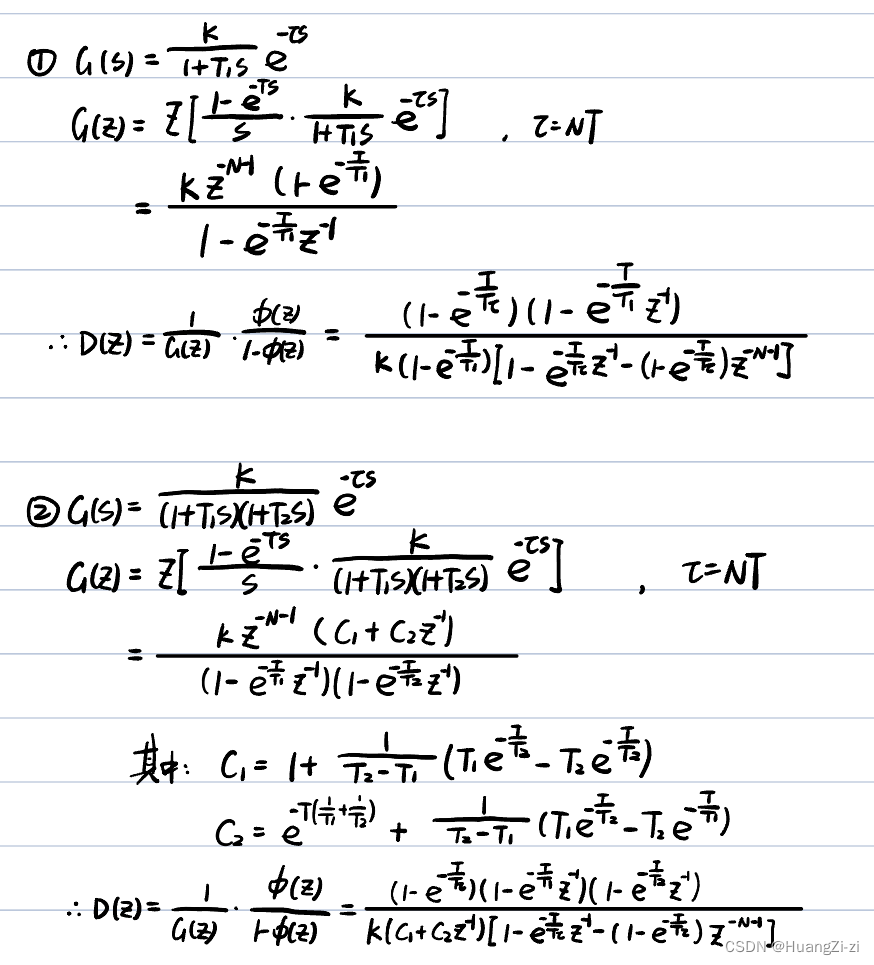 ① G(s) = \frac{k}{1+T_1 s} e^{-τs}
G(z) = Z[\frac{1-e^{-Ts}}{s} · \frac{k}{1+T_1 s} e^{-τs}] , τ=NT
= \frac{k z^{-N-1} (1-e^{-\frac{T}{T_1}})}{1-e^{-\frac{T}{T_1}} z^{-1}}
∴ D(z) = \frac{1}{G(z)} · \frac{ϕ(z)}{1-ϕ(z)} = \frac{(1-e^{-\frac{T}{T_τ}})(1-e^{-\frac{T}{T_1}} z^{-1})}{k(1-e^{-\frac{T}{T_1}})[1-e^{-\frac{T}{T_τ}} z^{-1}-(1-e^{-\frac{T}{T_τ}}) z^{-N-1}]}
② G(s) = \frac{k}{(1+T_1 s)(1+T_2 s)} e^{-τs}
G(z) = Z[\frac{1-e^{-Ts}}{s} · \frac{k}{(1+T_1 s)(1+T_2 s)} e^{-τs}] , τ=NT
= \frac{k z^{-N-1} (C_1+C_2 z^{-1})}{(1-e^{-\frac{T}{T_1}} z^{-1})(1-e^{-\frac{T}{T_2}} z^{-1})}
其中: C_1 = 1+ \frac{1}{T_2-T_1} (T_1 e^{-\frac{T}{T_2}} - T_2 e^{-\frac{T}{T_2}})
C_2 = e^{-T(\frac{1}{T_1}+\frac{1}{T_2})} + \frac{1}{T_2-T_1} (T_1 e^{-\frac{T}{T_2}} - T_2 e^{-\frac{T}{T_1}})
∴ D(z) = \frac{1}{G(z)} · \frac{ϕ(z)}{1-ϕ(z)} = \frac{(1-e^{-\frac{T}{T_τ}})(1-e^{-\frac{T}{T_1}} z^{-1})(1-e^{-\frac{T}{T_2}} z^{-1})}{k(C_1+C_2 z^{-1})[1-e^{-\frac{T}{T_τ}} z^{-1}-(1-e^{-\frac{T}{T_τ}}) z^{-N-1}]}
CSDN @HuangZi-zi